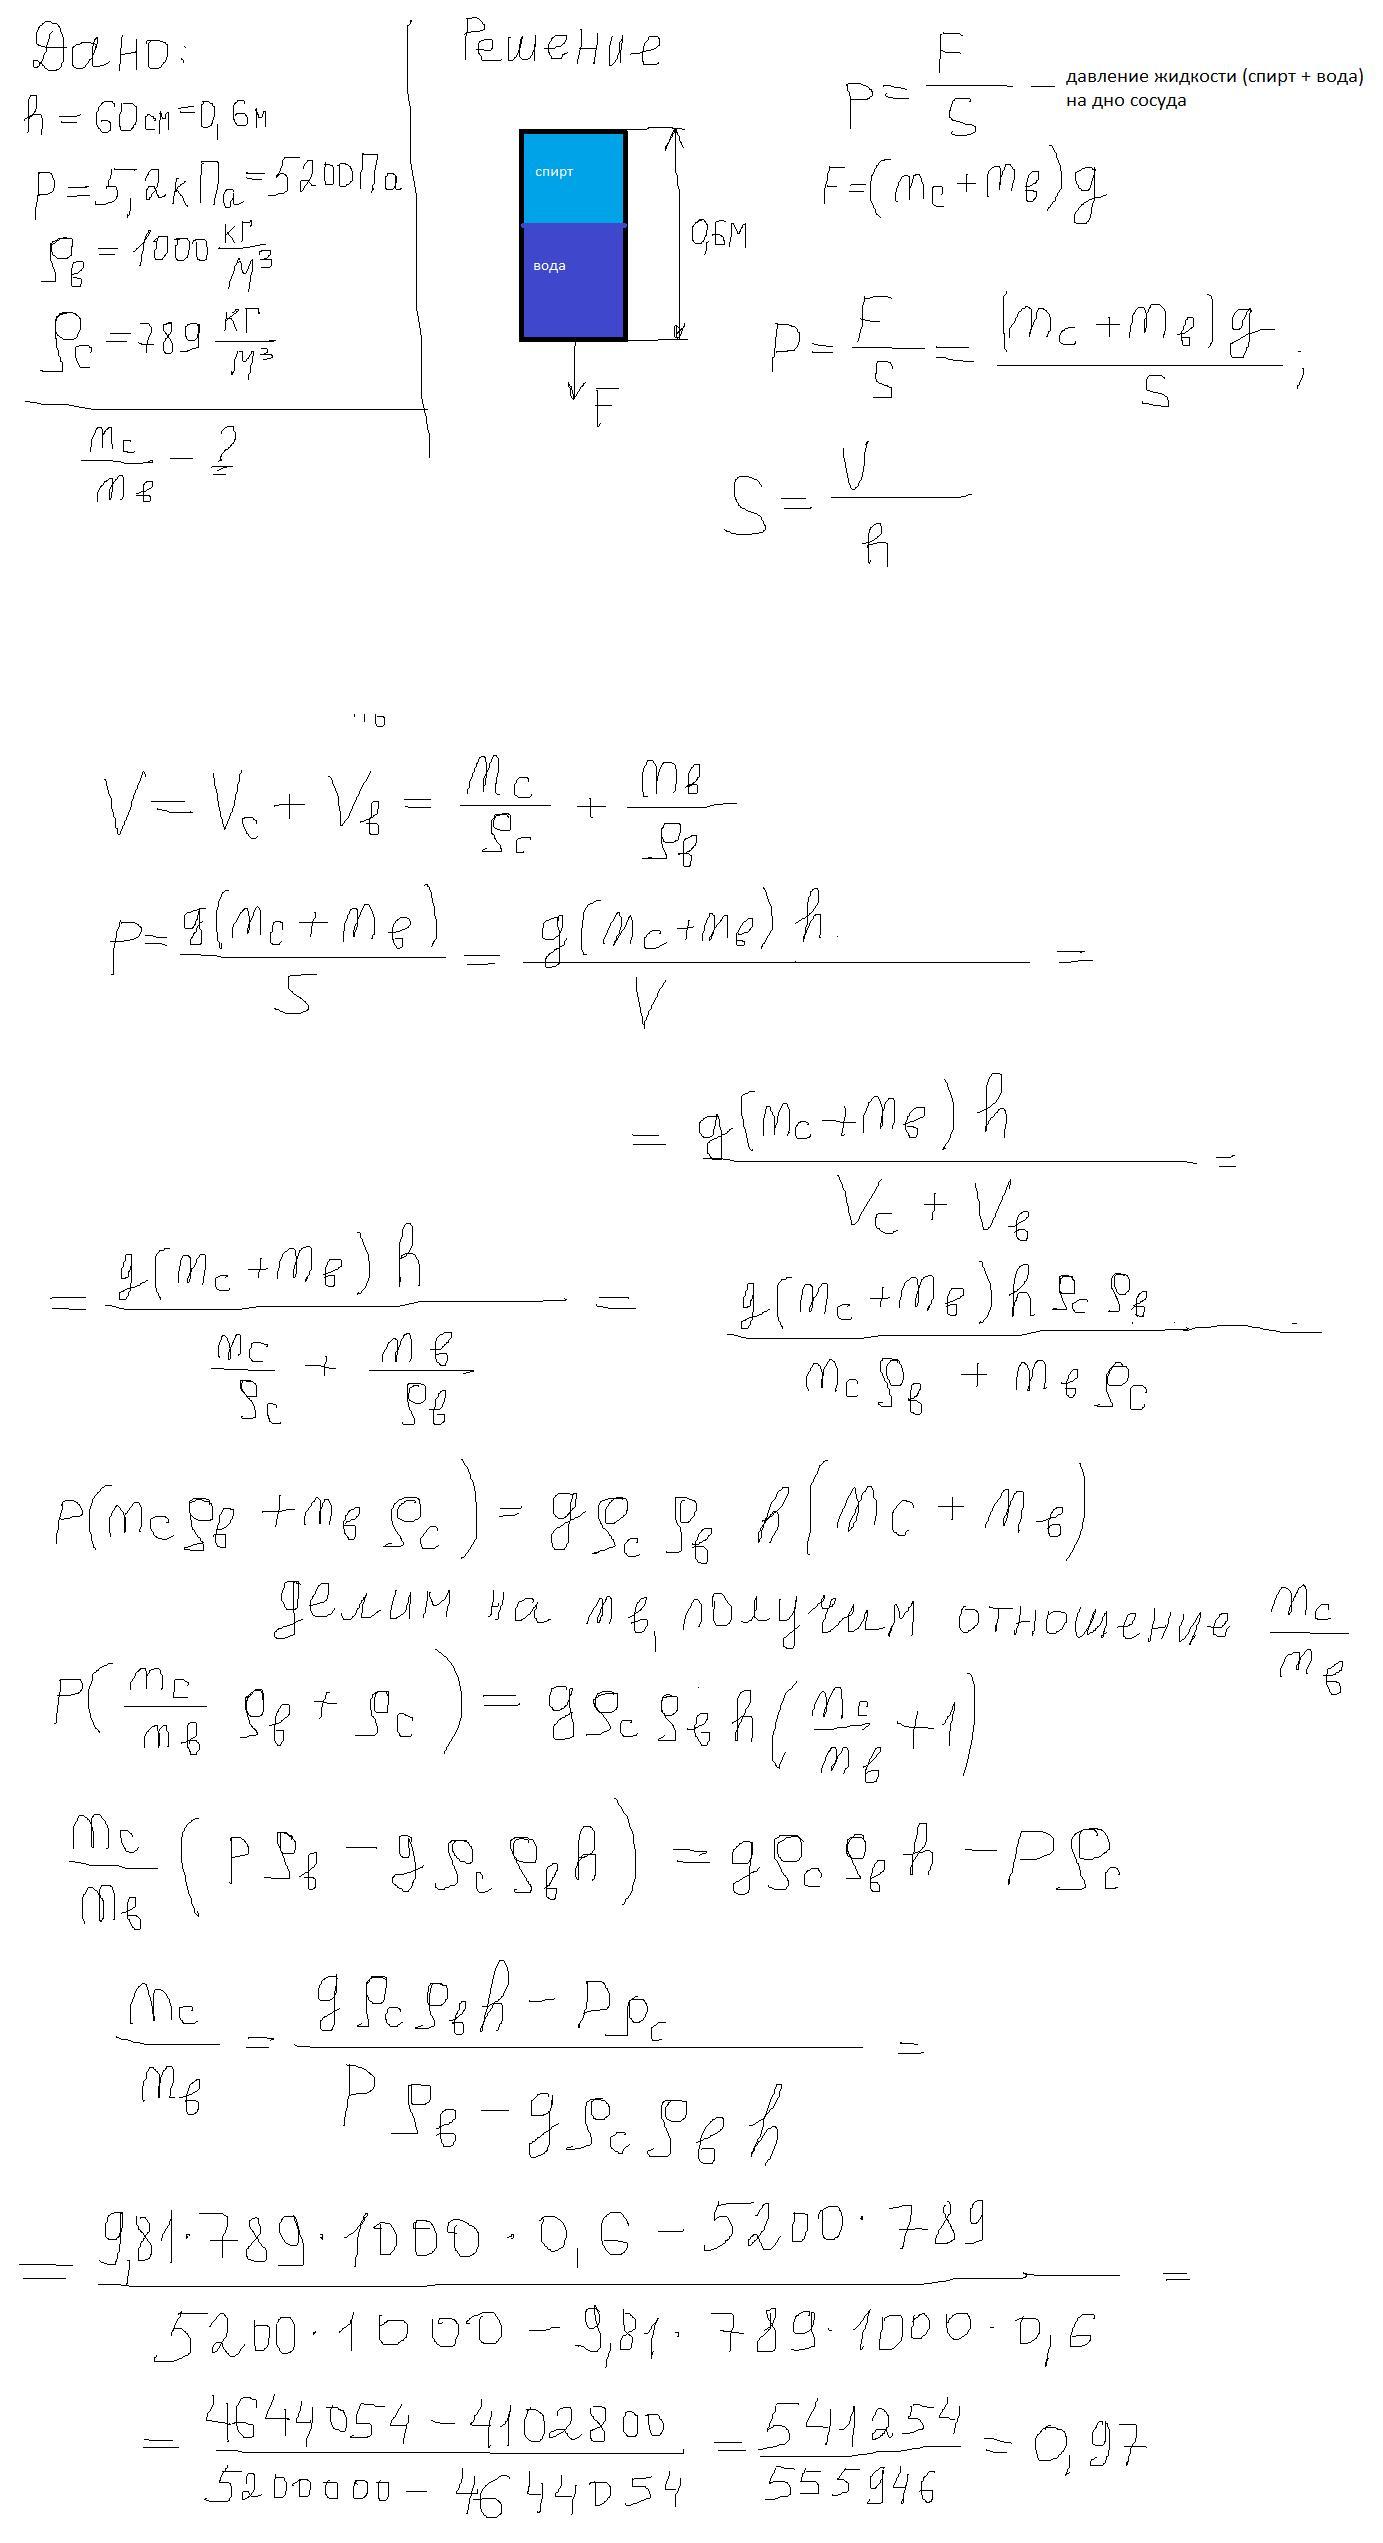 Дано:
h = 60см = 0,6м
P = 5,2кПа = 5200Па
ρв = 1000 кг/м³
ρс = 789 кг/м³
mс/mв - ?
Решение
спирт
вода
0,6м
F
P = F/S - давление жидкости (спирт + вода)
на дно сосуда
F = (mс + mв)g
P = F/S = (mс + mв)g/S ;
S = V/h
V = Vс + Vв = mс/ρс + mв/ρв
P = g(mс + mв)/S = g(mс + mв)h/V =
= g(mс + mв)h/(Vс + Vв) =
= g(mс + mв)h/(mс/ρс + mв/ρв) = g(mс + mв)hρсρв/(mсρв + mвρс)
P(mсρв + mвρс) = gρсρв h(mс + mв)
делим на mв, получим отношение mс/mв
P(mс/mв ρв + ρс) = gρсρвh(mс/mв + 1)
mс/mв (Pρв - gρсρвh) = gρсρвh - Pρс
mс/mв = (gρсρвh - Pρс)/(Pρв - gρсρвh) =
= (9,81·789·1000·0,6 - 5200·789)/(5200·1000 - 9,81·789·1000·0,6) =
= (4644054 - 4102800)/(5200000 - 4644054) = 541254/555946 = 0,97